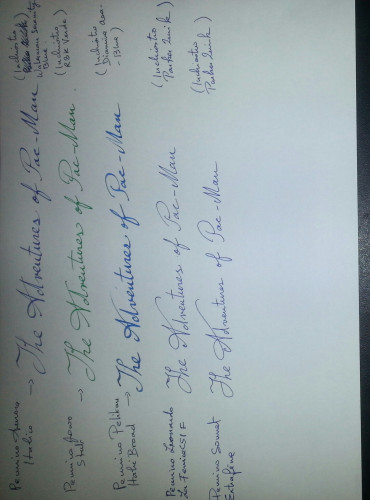 Pennino
Italic → The Adventures of Pac-Man (Inchiostro Waterman Serenity Blue)
Pennino
Stub → The Adventures of Pac-Man. (Inchiostro R&K Verde)
Pennino Pelikan
Hebi Broad → The Adventures of Pac-Man (Inchiostro Diamine Asa-Blue)
Pennino Leonardo
The Adventures of Pac-Man (Inchiostro Parker Quink)
Pennino
The Adventures of Pac-Man (Inchiostro Parker Quink)